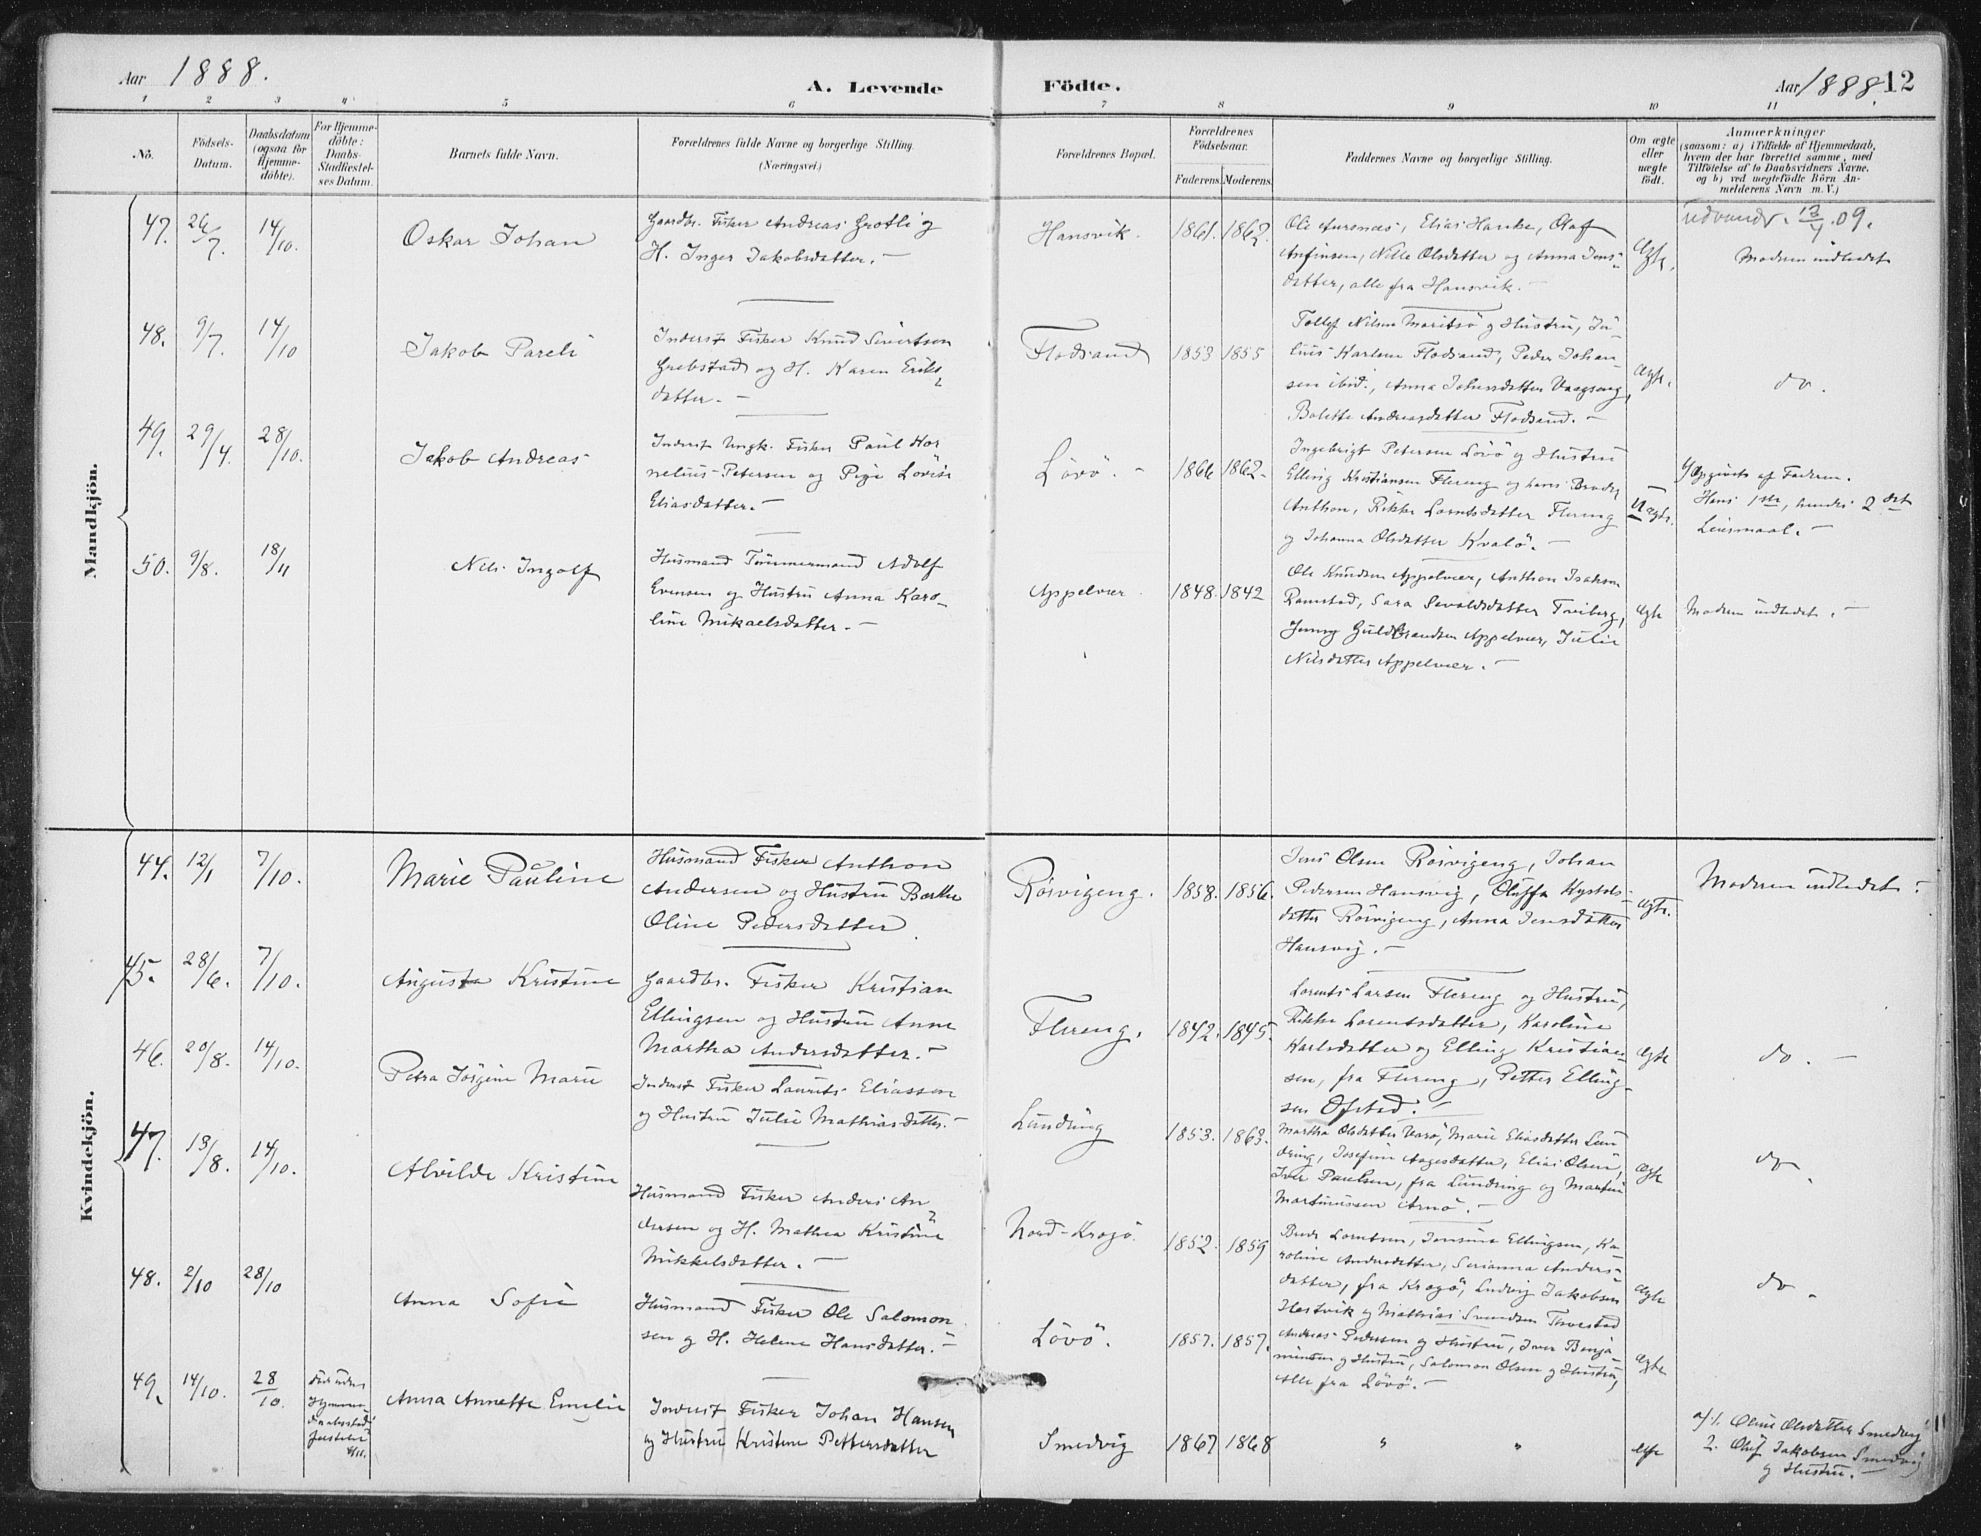 Aar 1888. A. Levende Födte. Aar 1888. 12
1 2 3 4 5 6 7 8 9 10 11
No.
Födsels-
Datum.
Daabsdatum
(ogsaa for
Hjemme-
döbte).
For Hjemme-
döbte:
Daabs-
Stadfæstel-
ses Datum.
Barnets fulde Navn.
Forældrenes fulde Navne og borgerlige Stilling.
(Næringsvei.)
Forældrenes Bopæl.
Forældrenes
Födselsaar.
Faderens. Moderens.
Faddernes Navne og borgerlige Stilling.
Om ægte
eller
uægte
födt.
Anmærkninger
(saasom: a) i Tilfælde af Hjemmedaab,
hvem der har forrettet samme, med
Tilföielse af to Daabsvidners Navne,
og b) ved uægtefödte Börn An-
melderens Navn m. V.)
Mandkjön.
47. 26/7. 14/10. Oskar Johan
Gaardbr. Fisker Andreas Grotli og
H. Inger Jakobsdatter. -
Hansvik. 1861. 1862.
Ole Aursnes, Elias Hanke, Olaf
Anfinsen, Nille Olsdatter og Anna Jens-
datter, alle fra Hansvik. -
Ægte.
udvandr. 13/4. 09.
Modern indledet
48. 9/7. 14/10 Jakob Pareli
Inderst Fisker Knud Sivertsen
Grebstad og H. Karen Eriks-
datter. -
Flodsand 1853 1855
Tollef Nilsen Maritsö og Hustru, Ju-
lius Karlsen Flodsand, Peder Johan-
sen ibid., Anna Johnsdatter Vaagseng,
Bolette Andreasdatter Flodsand. -
Ægte.
do.
49. 29/4. 28/10. Jakob Andreas
Inderst Ungk. Fisker Paul Kor
nelius Petersen og Pige Lovise
Eliasdatter. -
Lövö. - 1866 1862.
Ingebrigt Petersen Lövö og Hustru
Elling Kristiansen Flereng og hans Broder
Anthon, Rikke Lorntsdatter Flereng
og Johanna Olsdatter Kvalö. -
Uægte.
Opgivet af Faderen.
Hans 1ste, hendes 2det
Leiermaal. -
50. 9/8. 18/11 Nils Ingolf
Husmand Tömmermand Adolf
Evensen og Hustru Anna Karo-
line Mikaelsdatter. -
Appelvær. 1848. 1842
Ole Knudsen Appelvær, Anthon Isaksen
Ramstad, Sara Sevaldsdatter Tviberg,
Jenny Guldbrandsen Appelvær, Julie
Nilsdatter Appelvær. -
Ægte
Modern indledet. -
Kvindekjön.
44. 12/1 7/10. Marie Pauline
Husmand Fisker Anthon
Andersen og Hustru Berthe
Oline Pedersdatter.
Rörvigeng. 1858. 1856.
Jens Olsen Rörvigeng, Johan
Pedersen Hansvig, Oluffa Kystols-
datter Rörvigeng, Anna Jensdatter
Hansvig. -
Ægte.
Modern indledet. -
45. 28/6. 7/10. Augusta Kristine
Gaardbr. Fisker Kristian
Ellingsen og Hustru Anne
Martha Andersdatter. -
Flereng. 1842. 1845.
Lorents Larsen Flereng og Hustru,
Rikke Lorentsdatter, Karoline
Karlsdatter og Elling Kristian-
sen, fra Flereng, Petter Elling-
sen Ofstad. -
Ægte
do. -
46. 20/8. 14/10. Petra Jörgine Marie
Inderst Fisker Laurits Eliassen
og Hustru Julie Mathiasdatter. -
Lundring 1853. 1863.
Martha Olsdatter Varö, Marie Eliasdatter Lun
dring, Josefine Aagesdatter, Elias Olsen,
Iver Paulsen, fra Lundring og Martin
Martinussen Arnö. -
Ægte
do.
47. 13/8. 14/10. Alvilde Kristine
Husmand Fisker Anders An-
dersen og H. Mathea Kristine
Mikkelsdatter. -
Nord-Krogö. 1852. 1859
Berdo Lorntsen, Jensine Ellingsen, Ka-
roline Andersdatter, Serianna Anders-
datter, fra Krogö, Ludvig Jakobsen
Hestvik og Mathias Svendsen Torvestad
Ægte
do.
48. 2/10 28/10 Anna Sofie
Husmand Fisker Ole Salomon
sen og H. Helene Hansdatter. -
Lövö. 1857. 1857.
Andreas Pedersen og Hustru, Iver Benja-
minsen og Hustru, Salomon Olsen og Hustru,
Alle fra Lövö. -
Ægte
49. 14/10. 28/10. Anna Annette Emelie
Inderst Fisker Johan Hansen
og Hustru Kristine Pettersdatter
Smedvig 1867 1868
" "
a) 1. Oline Olsdatter Smedvig
2. Oluf Jakobsen Smedvig
og Hustru. -